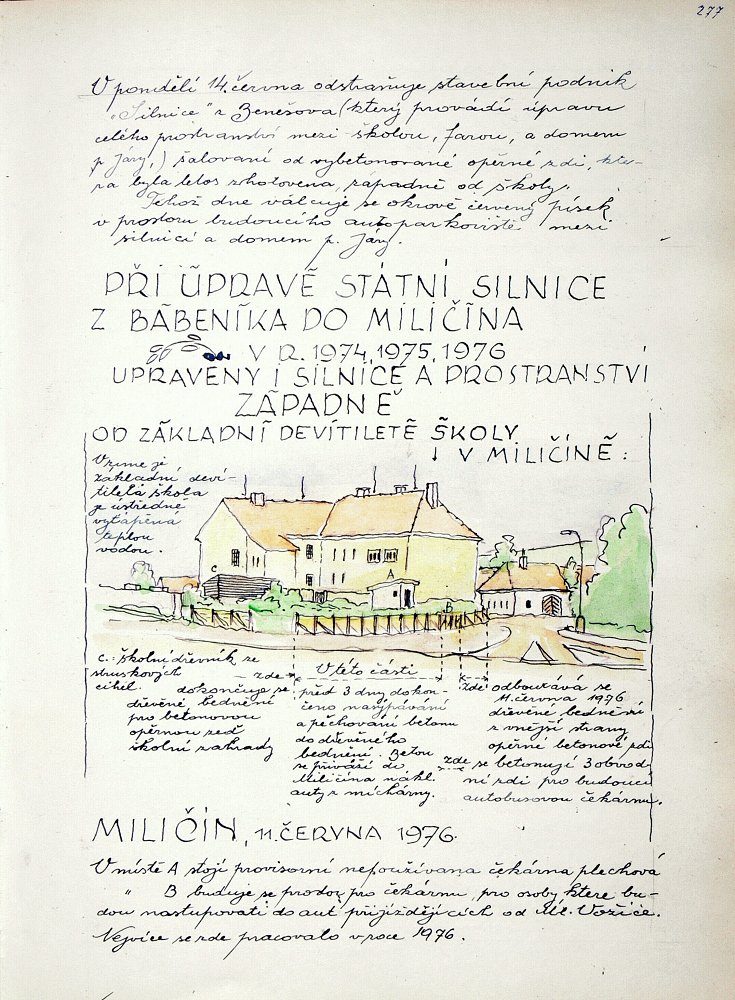 277
V pondělí 14. června odstraňuje stavební podnik
"Silnice" z Benešova (který provádí úpravu
celého prostranství mezi školou, farou, a domem
p. Járy,) šalování od vybetonované opěrné zdi, kte-
rá byla letos zhotovena, západně od školy.
Tehož dne válcuje se okrově červený písek
v prostoru budoucího autoparkoviště mezi
silnicí a domem p. Járy.
PŘI ÚPRAVĚ STÁTNÍ SILNICE
Z BABENÍKA DO MILIČÍNA
V R. 1974, 1975, 1976
UPRAVENY I SILNICE A PROSTRANSTVÍ
ZÁPADNĚ
OD ZÁKLADNÍ DEVÍTILETÉ ŠKOLY
V MILIČÍNĚ:
V zimě je
základní deví-
tiletá škola
je ústředně
vytápěna
teplou
vodou.
C
A
B
C. školní dřevník ze
struskových
cihel.
zde
dokončuje se
dřevěné bednění
pro betonovou
opěrnou zeď
školní zahrady
V této části
před 3 dny dokon-
čeno nasýpávání
a pěchování betonu
do dřevěného
bednění. Beton
se přiváží do
Miličína nákl.
auty z míchárny.
zde odbourává se
11. června 1976
dřevěné bednění
z vnější strany
opěrné betonové zdi
zde se betonují 3 obvod-
ní zdi pro budoucí
autobusovou čekárnu.
MILIČÍN, 11. ČERVNA 1976.
V místě A stojí provisorní nepoužívaná čekárna plechová
" B buduje se prostor pro čekárnu, pro osoby které bu-
dou nastupovati do aut přijíždějících od Ml. Vožice.
Nejvíce se zde pracovalo v roce 1976.